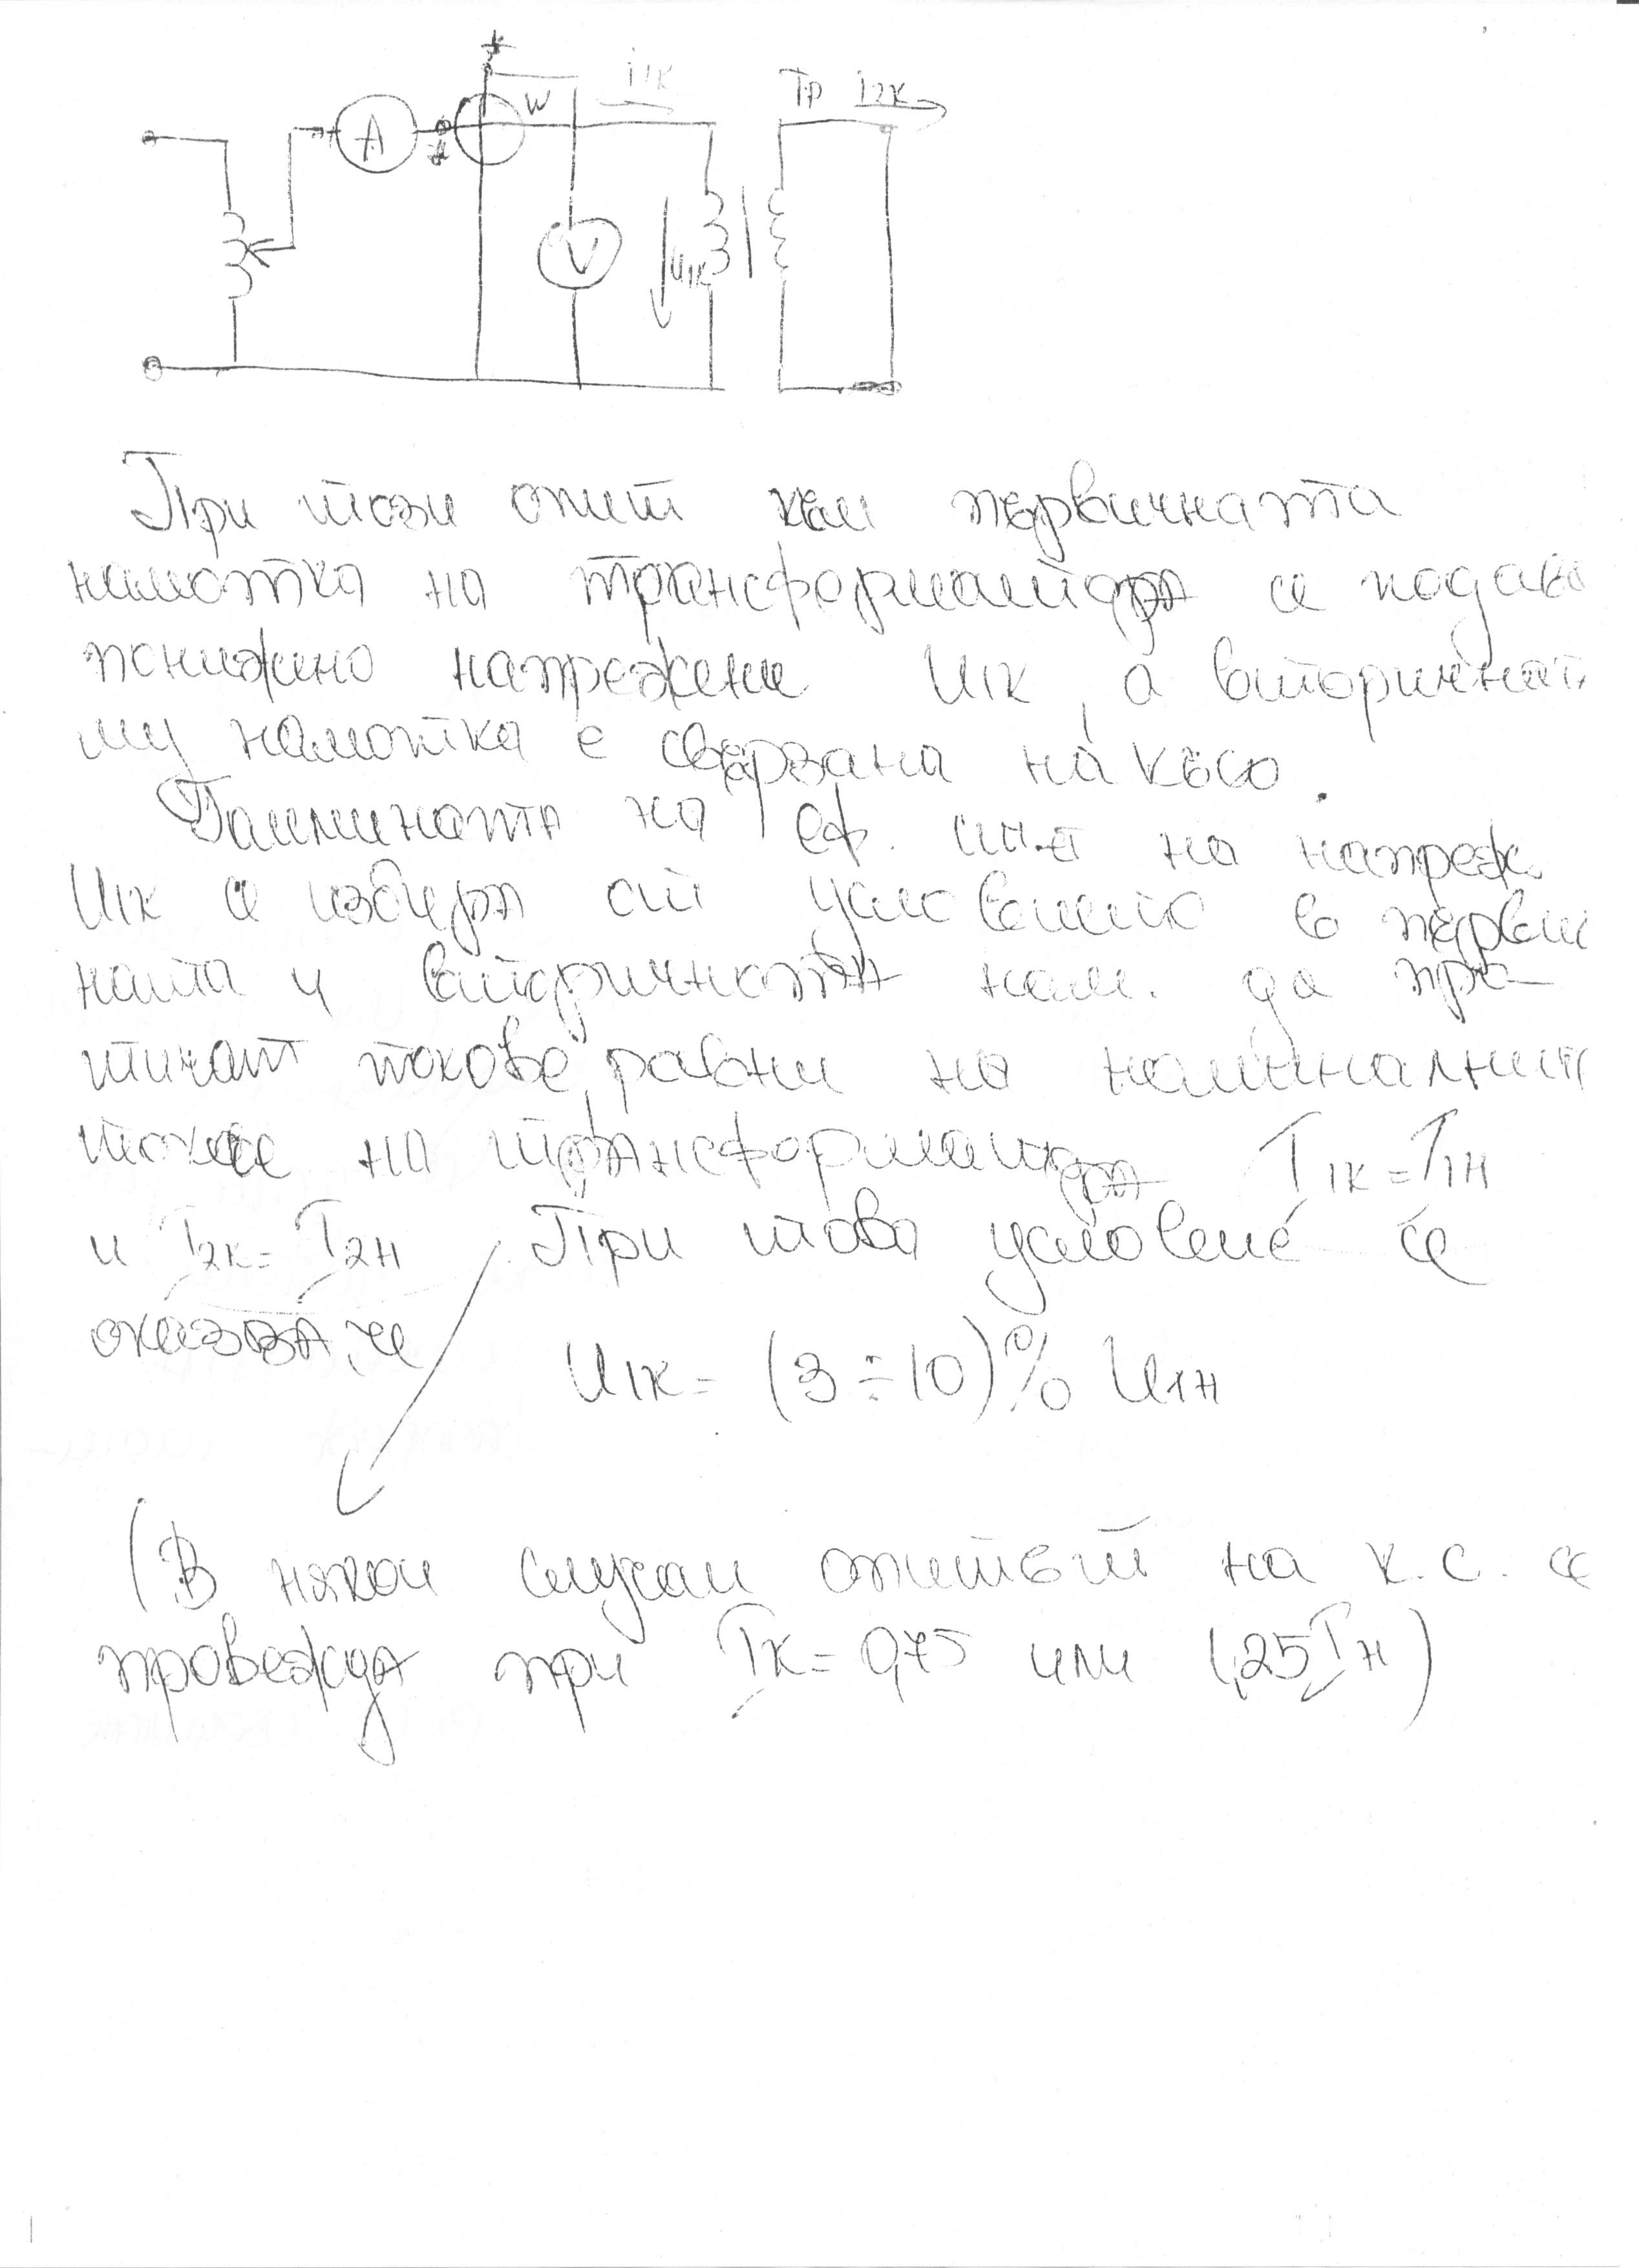 W i1к Тр i2к
А
V U1к
При този опит към първичната
намотка на трансформатора се подава
понижено напрежение U1к, а вторичнат
му намотка е свързана на късо.
на еф. ст-ст на напреж.
U1к се избира от условието в първич
ната и вторичната нам. да про-
тичат токове, равни на номиналните
токове на трансформатора I1к = I1н
и I2к = I2н. При това условие се
оказва, че
U1к = (3 ÷ 10)% U1н
(В някои случаи опитът на к.с. се
провежда при Iк = 0,75 или 1,25 Iн)